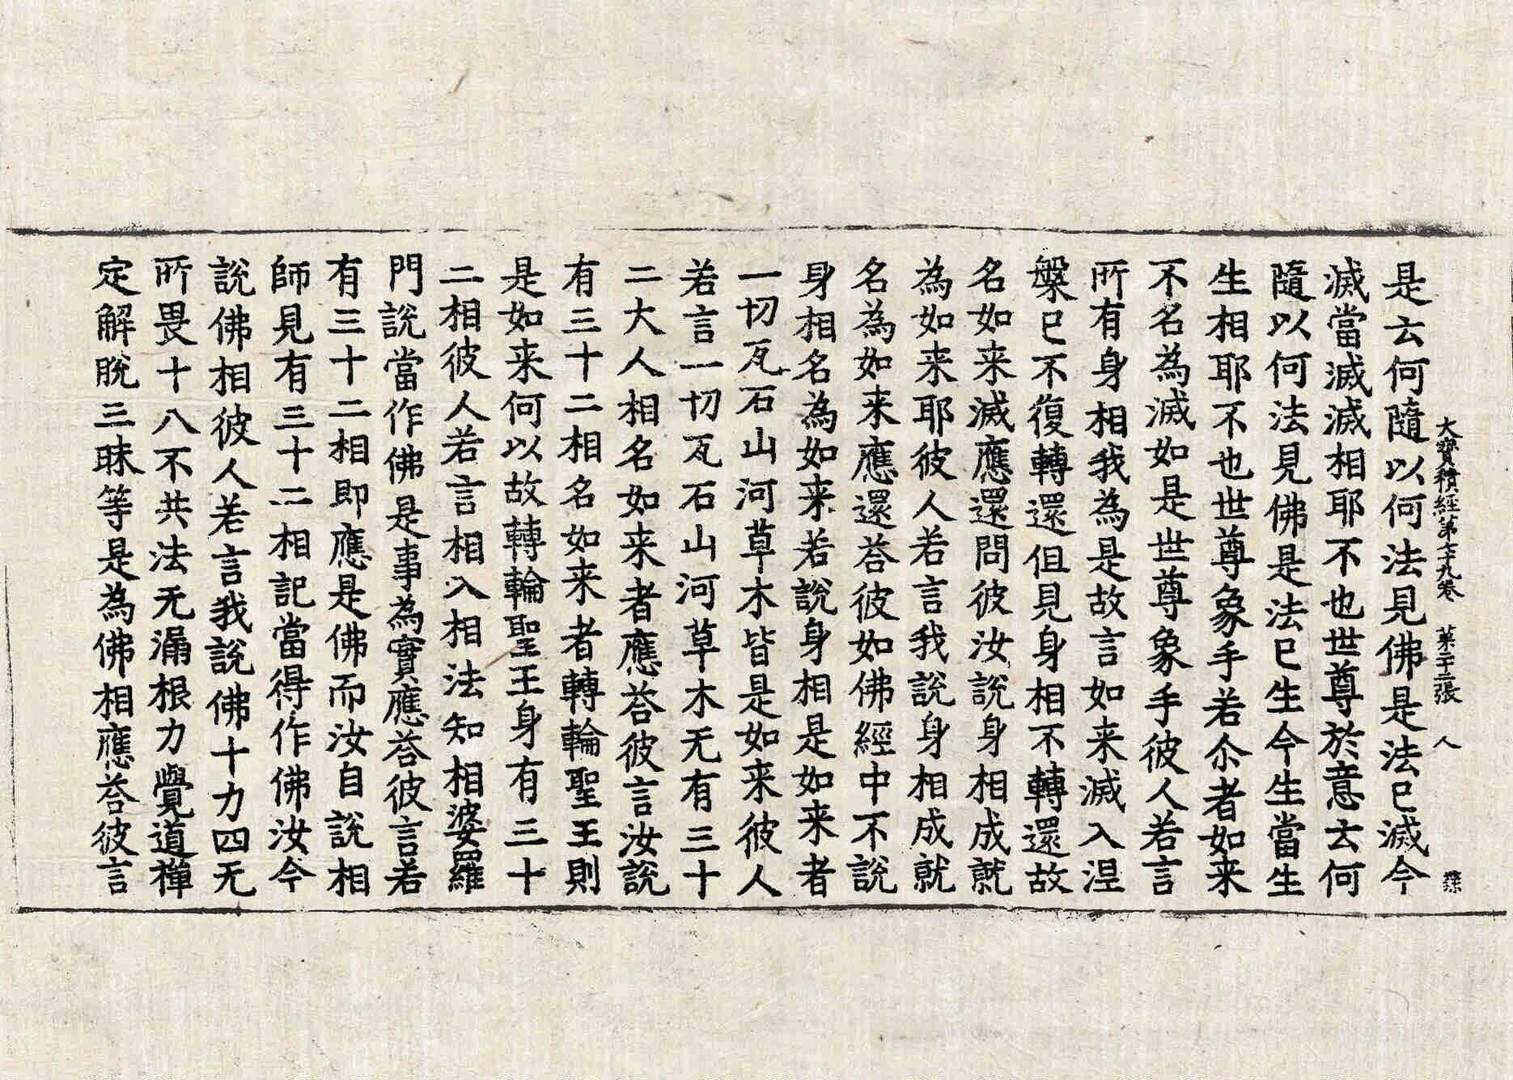 大寳積經第七十九卷 苐二十三張 人
是云何隨以何法見佛是法已滅今
滅當滅滅相耶不也世尊於意云何
隨以何法見佛是法已生今生當生
生相耶不也世尊象手若尒者如来
不名為滅如是世尊象手彼人若言
所有身相我為是故言如来滅入涅
槃已不復轉還但見身相不轉還故
名如来滅應還問彼汝說身相成就
為如来耶彼人若言我說身相成就
名為如来應還荅彼如佛經中不說
身相名為如来若說身相是如来者
一切瓦石山河草木皆是如来彼人
若言一切瓦石山河草木无有三十
二大人相名如来者應荅彼言汝說
有三十二相名如来者轉輪聖王則
是如来何以故轉輪聖王身有三十
二相彼人若言相入相法知相婆羅
門說當作佛是事為實應荅彼言若
有三十二相即應是佛而汝自說相
師見有三十二相記當得作佛汝今
說佛相彼人若言我說佛十力四无
所畏十八不共法无漏根力覺道禪
定解脫三昧等是為佛相應荅彼言